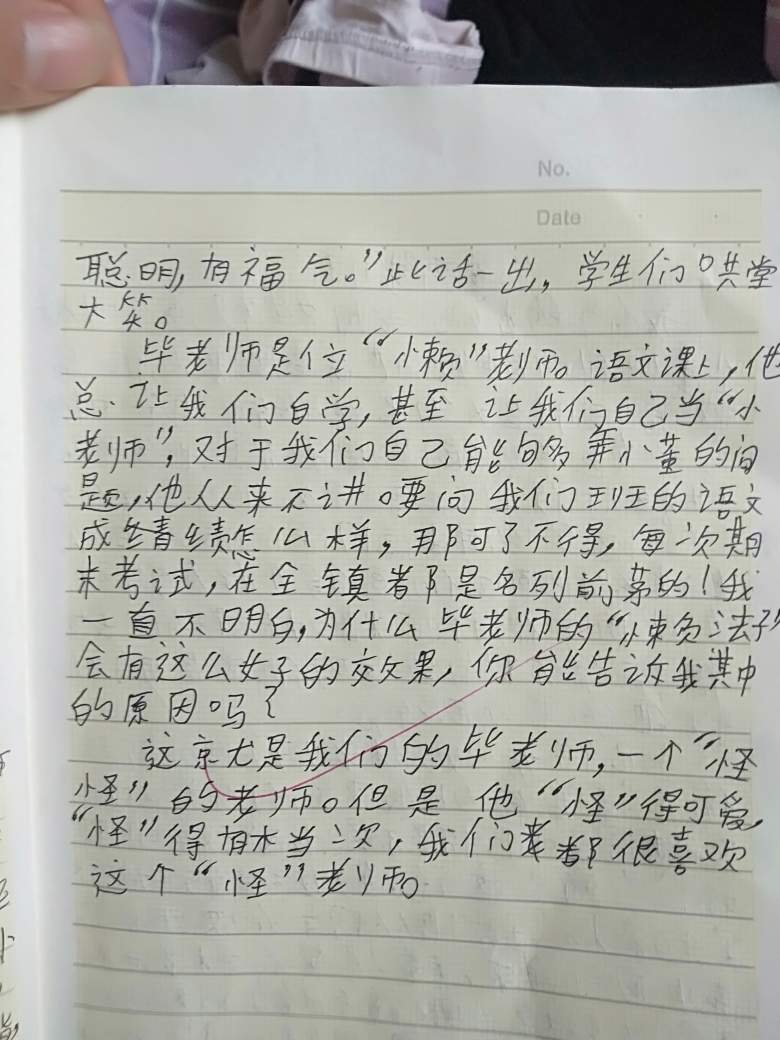 No.
Date
聪明,有福气。”此话一出,学生们哄堂
大笑。
毕老师是位“懒”老师。语文课上,他
总让我们自学,甚至让我们自己当“小
老师”,对于我们自己能够弄懂的问
题,他从来不讲。要问我们班的语文
成绩怎么样,那可了不得,每次期
末考试,在全镇都是名列前茅的!我
一直不明白,为什么毕老师的“懒法子”
会有这么好的效果,你能告诉我其中
的原因吗?
这就是我们的毕老师,一个“怪
怪”的老师。但是他“怪”得可爱,
“怪”得有水当次,我们都很喜欢
这个“怪”老师。